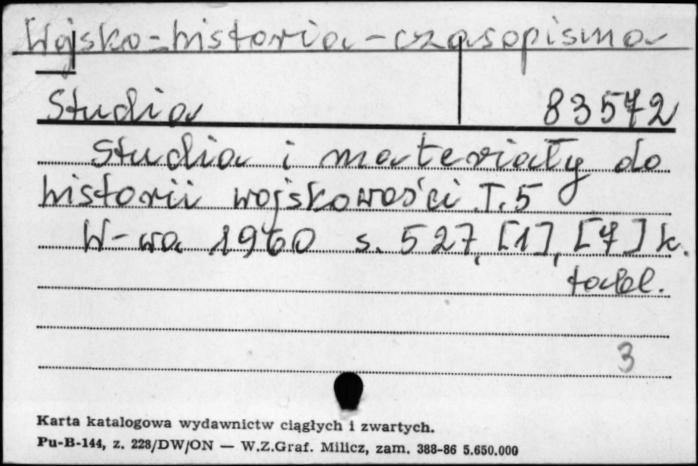 Wojsko-historia-czasopisma
Studia 83572
Studia i materiały do
historii wojskowości T.5
W-wa 1960 s. 527, [1], [4] k.
tabl.
3
Karta katalogowa wydawnictw ciągłych i zwartych.
Pu-B-144, z. 228/DW/ON — W.Z.Graf. Milicz, zam. 388-86 5.650.000